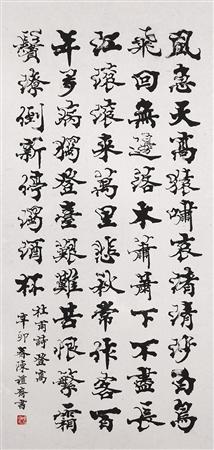 風急天高猿嘯哀渚清沙白鳥
飛回無邊落木蕭蕭下不盡長
江滾滾來萬里悲秋常作客百
年多病獨登臺艱難苦恨繁霜
鬢潦倒新停濁酒杯
杜甫詩登高
辛卯春陳書